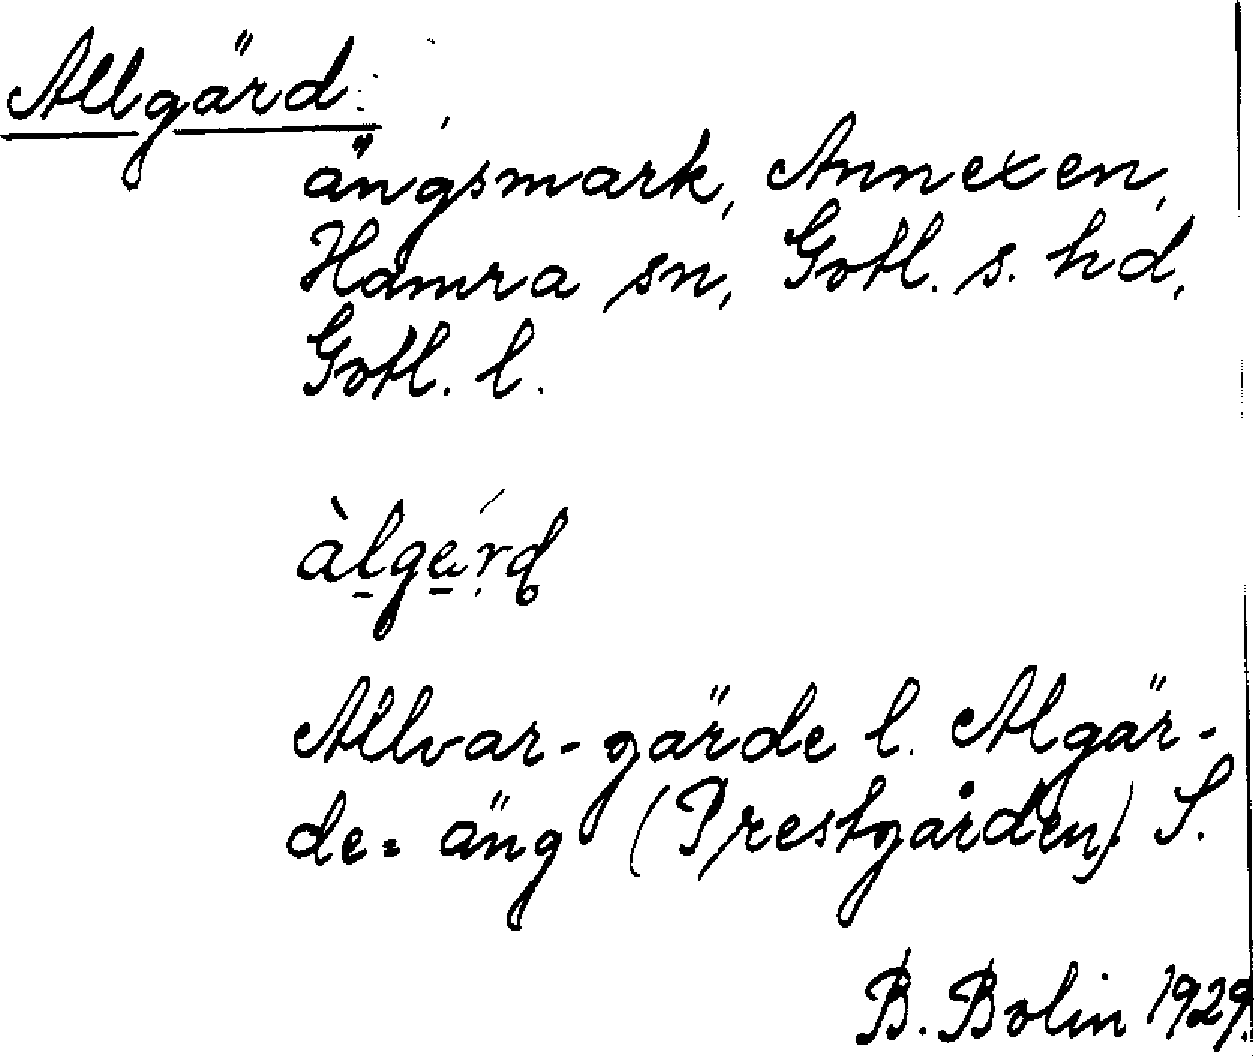 Allgärd
ängsmark, Annexen,
Hamra sn, Gotl. s. hd,
Gotl. l.
àlgärd
Allvar-gärde l. Algär-
de-äng (Prestgården) S.
B. Bolin 1929.